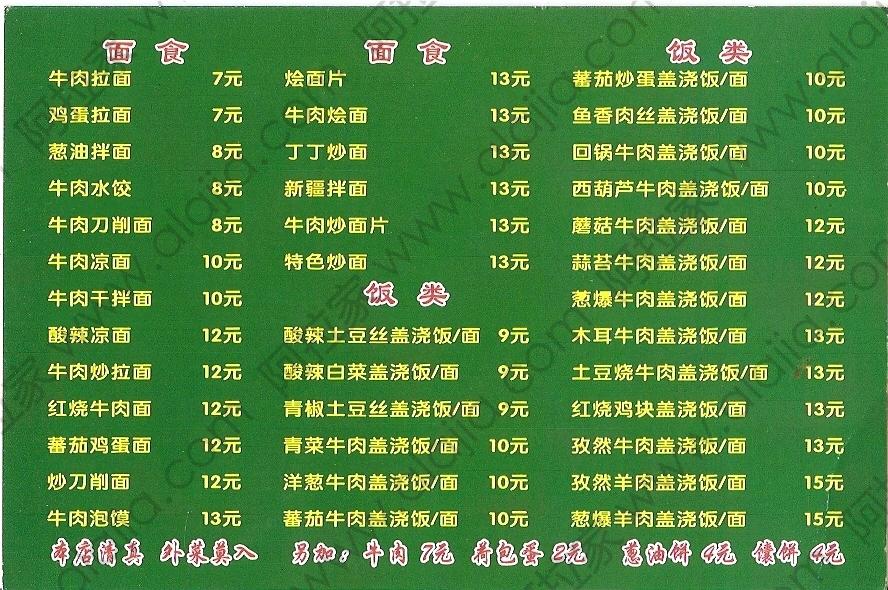 面食
牛肉拉面 7元
鸡蛋拉面 7元
葱油拌面 8元
牛肉水饺 8元
牛肉刀削面 8元
牛肉凉面 10元
牛肉干拌面 10元
酸辣凉面 12元
牛肉炒拉面 12元
红烧牛肉面 12元
蕃茄鸡蛋面 12元
炒刀削面 12元
牛肉泡馍 13元
面食
烩面片 13元
牛肉烩面 13元
丁丁炒面 13元
新疆拌面 13元
牛肉炒面片 13元
特色炒面 13元
饭类
酸辣土豆丝盖浇饭/面 9元
酸辣白菜盖浇饭/面 9元
青椒土豆丝盖浇饭/面 9元
青菜牛肉盖浇饭/面 10元
洋葱牛肉盖浇饭/面 10元
蕃茄牛肉盖浇饭/面 10元
饭类
蕃茄炒蛋盖浇饭/面 10元
鱼香肉丝盖浇饭/面 10元
回锅牛肉盖浇饭/面 10元
西葫芦牛肉盖浇饭/面 10元
蘑菇牛肉盖浇饭/面 12元
蒜苔牛肉盖浇饭/面 12元
葱爆牛肉盖浇饭/面 12元
木耳牛肉盖浇饭/面 13元
土豆烧牛肉盖浇饭/面 13元
红烧鸡块盖浇饭/面 13元
孜然牛肉盖浇饭/面 13元
孜然羊肉盖浇饭/面 15元
葱爆羊肉盖浇饭/面 15元
本店清真 外菜莫入 另加：牛肉 7元 荷包蛋 2元 葱油饼 4元 馕饼 4元
阿拉家 www.alajia.com